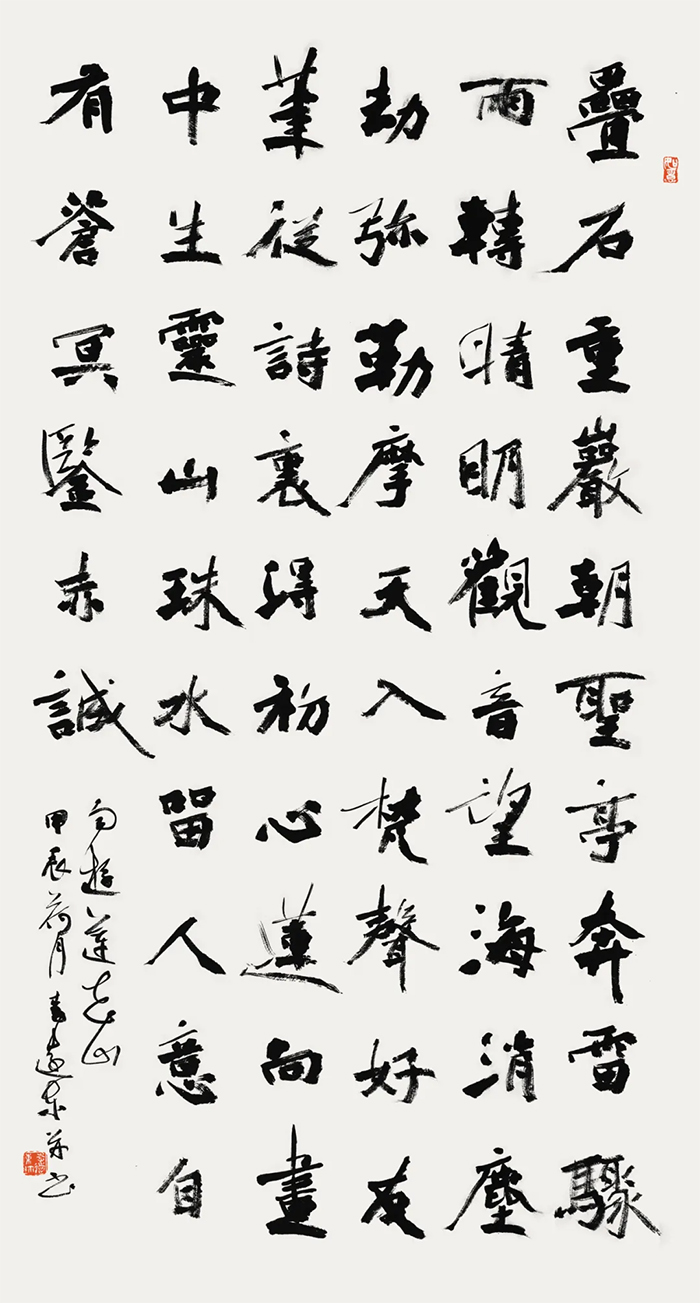 疊石重巖朝聖亭奔雷驟
雨轉晴明觀音望海消塵
劫弥勒摩天入梵聲好友
筆從詩裏得初心蓮向畫
中生靈山珠水留人意自
有蒼冥鑒赤誠
遊蓮花山
甲辰荷月遠東并书